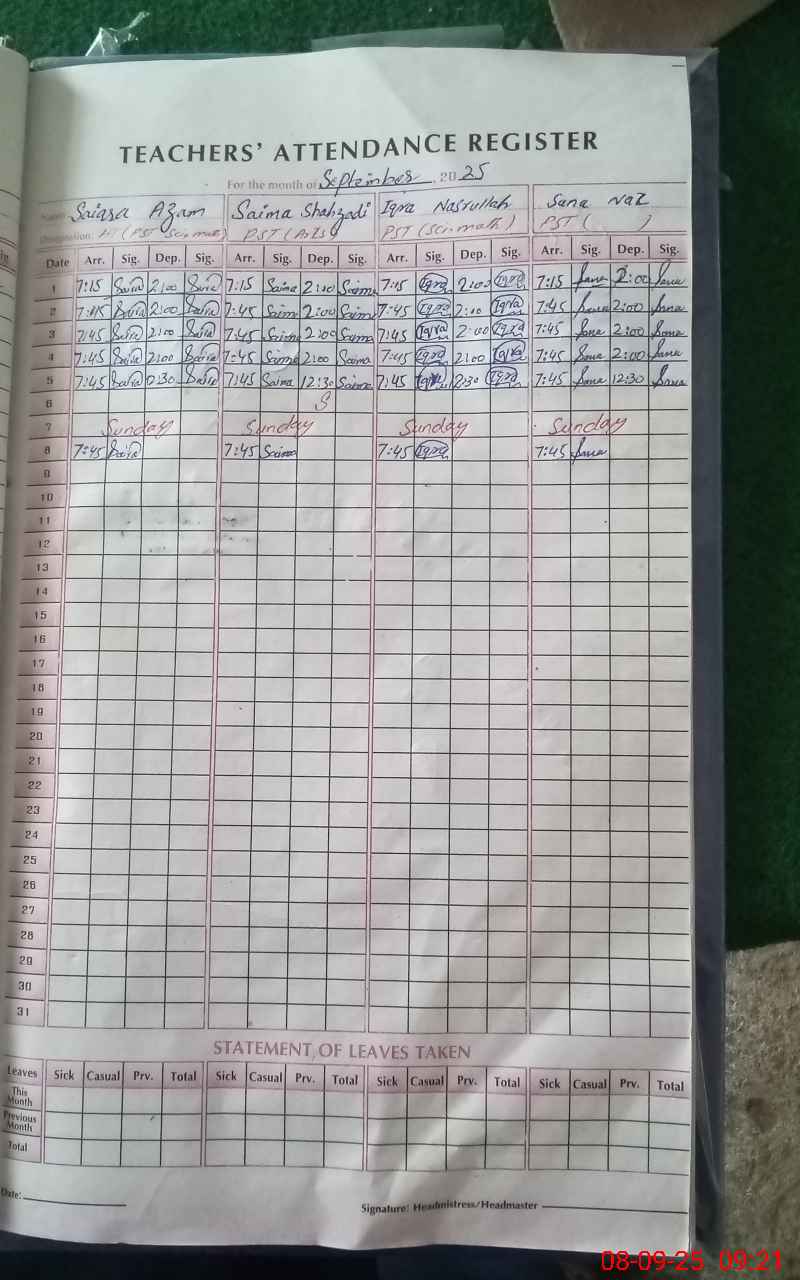 TEACHERS' ATTENDANCE REGISTER
For the month of September, 20 25
Name Saiara Azam Saima Shahzadi Iqra Nasrullah Sana Naz
Designation: HT (PST Sci-math) PST (Arts) PST (Sci.math) PST ( )
Date Arr. Sig. Dep. Sig. Arr. Sig. Dep. Sig. Arr. Sig. Dep. Sig. Arr. Sig. Dep. Sig.
1 7:15 Saira 2:00 Saira 7:15 Saima 2:00 Saima 7:15 Iqra 2:00 Iqra 7:15 Sana 2:00 Sana
2 7:45 Saira 2:00 Saira 7:45 Saima 2:00 Saima 7:45 Iqra 2:00 Iqra 7:45 Sana 2:00 Sana
3 7:45 Saira 2:00 Saira 7:45 Saima 2:00 Saima 7:45 Iqra 2:00 Iqra 7:45 Sana 2:00 Sana
4 7:45 Saira 2:00 Saira 7:45 Saima 2:00 Saima 7:45 Iqra 2:00 Iqra 7:45 Sana 2:00 Sana
5 7:45 Saira 12:30 Saira 7:45 Saima 12:30 Saima 7:45 Iqra 12:30 Iqra 7:45 Sana 12:30 Sana
6 S
7 Sunday Sunday Sunday Sunday
8 7:45 Saira 7:45 Saima 7:45 Iqra 7:45 Sana
9
10
11
12
13
14
15
16
17
18
19
20
21
22
23
24
25
26
27
28
29
30
31
STATEMENT OF LEAVES TAKEN
Leaves Sick Casual Prv. Total Sick Casual Prv. Total Sick Casual Prv. Total Sick Casual Prv. Total
This Month
Previous Month
Total
Date:
Signature: Headmistress/Headmaster
08-09-25 09:21